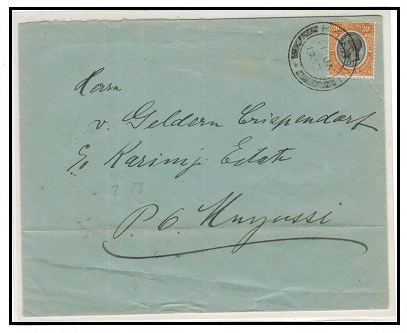 Herrn
v. Geldern Crispendorf
c/o Karimij Estate
P. O. Muyussi